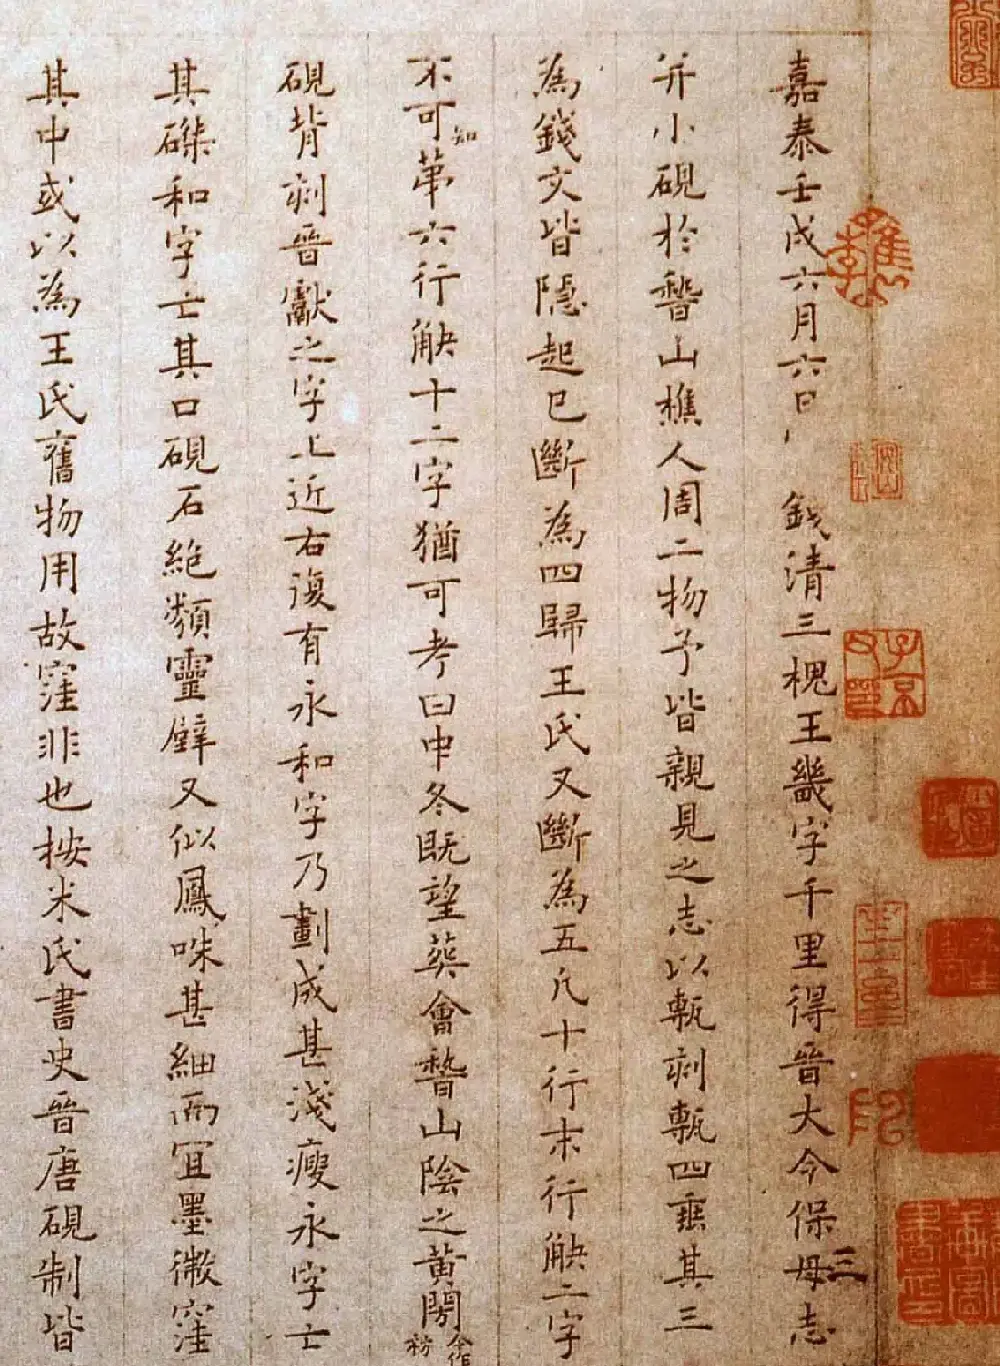 嘉泰壬戌六月六日 錢清三槐王畿字千里得晉大令保母志
并小硯於稽山樵人周二物予皆親見之志以甎刻甎四垂其三
為錢文皆隱起已斷為四歸王氏又斷為五凡十行末行缺二字
不可知第六行缺十二字猶可考曰中冬既望葬會稽山陰之黃閍
硯背刻晉獻之字上近右復有永和字乃劃成甚淺瘦永字亡
其磔和字亡其口硯石絶類靈壁又似鳳咮甚細而宜墨微窪
其中或以為王氏舊物用故窪非也按米氏書史晉唐硯制皆
三